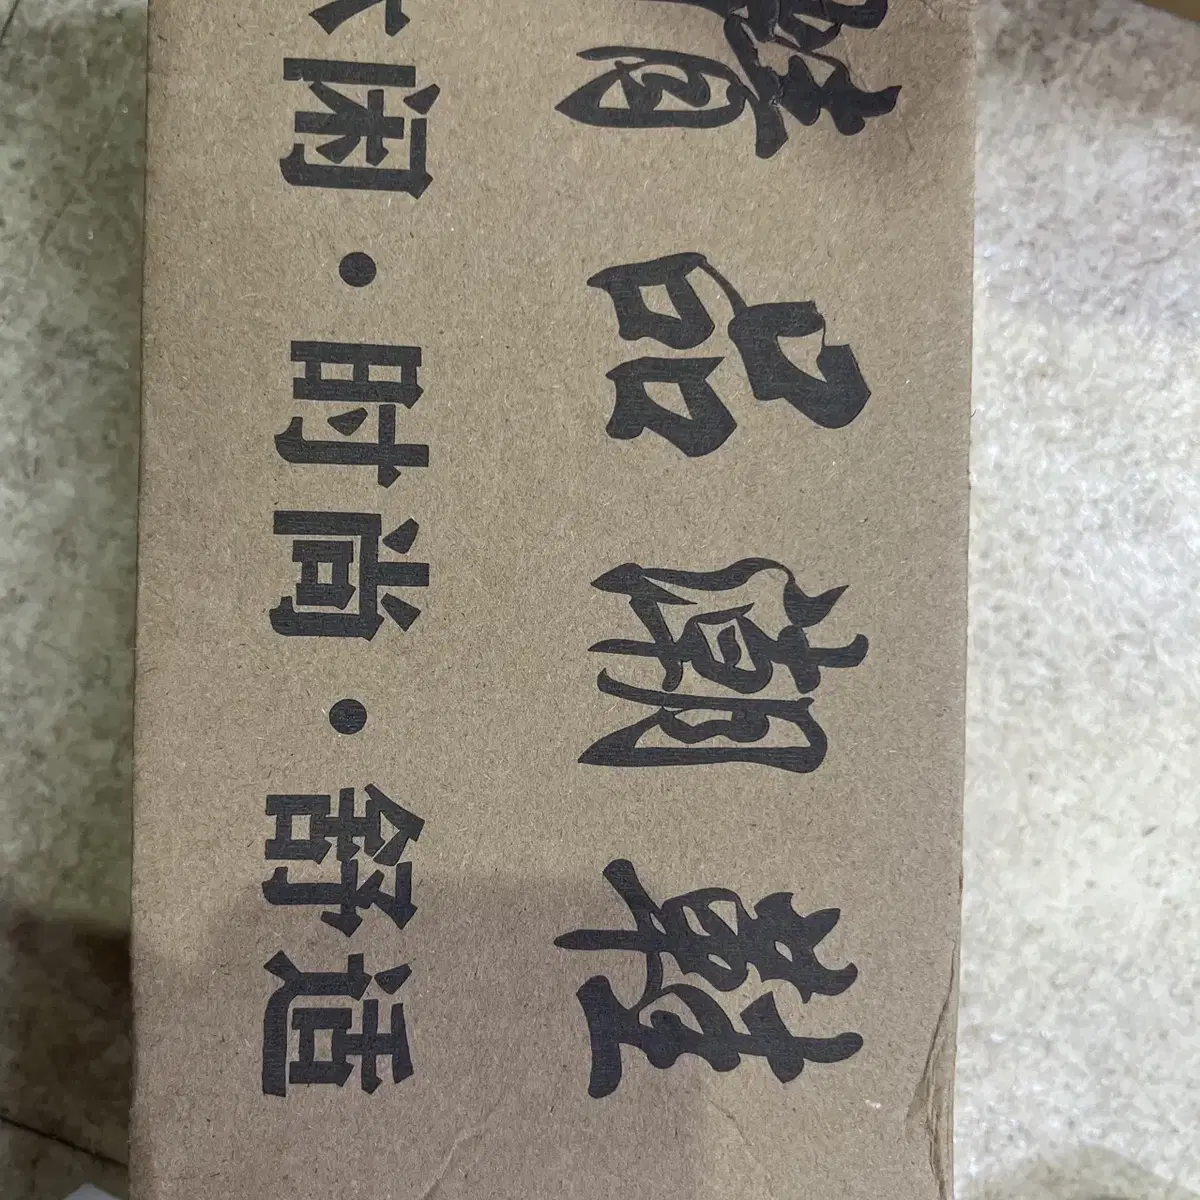 精品潮鞋
休闲·时尚·舒适